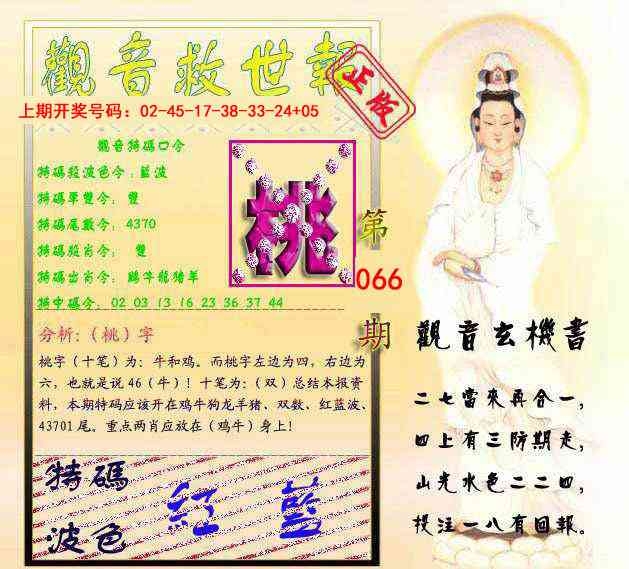 觀音救世報
正版
上期开奖号码：02-45-17-38-33-24+05
觀音特碼口令
特碼段波色令：藍波
特碼單雙令： 雙
特碼尾數令： 4370
特碼段肖令： 雙
特碼出肖令： 鷄牛龍豬羊
特中碼令： 02 03 13 16 23 36 37 44
桃
第
066
期
分析：（桃）字
桃字（十笔）为：牛和鸡。而桃字左边为四，右边为
六，也就是说 46（牛）！十笔为：（双）总结本报资
料，本期特码应该开在鸡牛狗龙羊猪、双数、红蓝波、
43701 尾。重点两肖应放在（鸡牛）身上！
特碼
波色
紅 藍
觀音玄機書
二七當來再合一，
四上有三防期走，
山光水色二二四，
投注一八有回報。